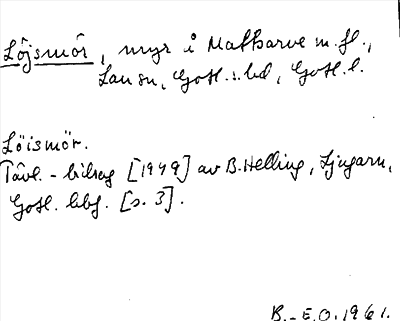 Löjsmör, myr i Mattsarve m.fl.,
Lau sn, Gotl. s. hd, Gotl. l.
Löismör.
Tävl.-bidrag [1949] av B. Helling, Ljugarn,
Gotl. bbg. [s. 3].
B.-E.O. 1961.